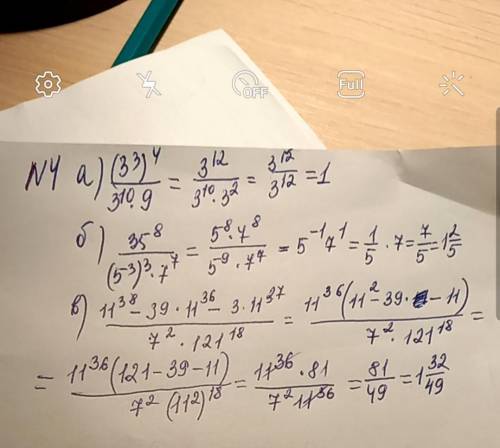 OFF Full
N4 а) (3³)⁴/(3¹⁰·9) = 3¹²/(3¹⁰·3²) = 3¹²/3¹² = 1
б) 35⁸/((5⁻³)³·7⁷) = 5⁸·7⁸/(5⁻⁹·7⁷) = 5⁻¹7¹ = 1/5·7 = 7/5 = 1 2/5
в) (11³⁸-39·11³⁶-3·11³⁷)/(7²·121¹⁸) = 11³⁶(11²-39-11)/(7²·121¹⁸) =
= 11³⁶(121-39-11)/(7²(11²)¹⁸) = 11³⁶·81/(7²11³⁶) = 81/49 = 1 32/49